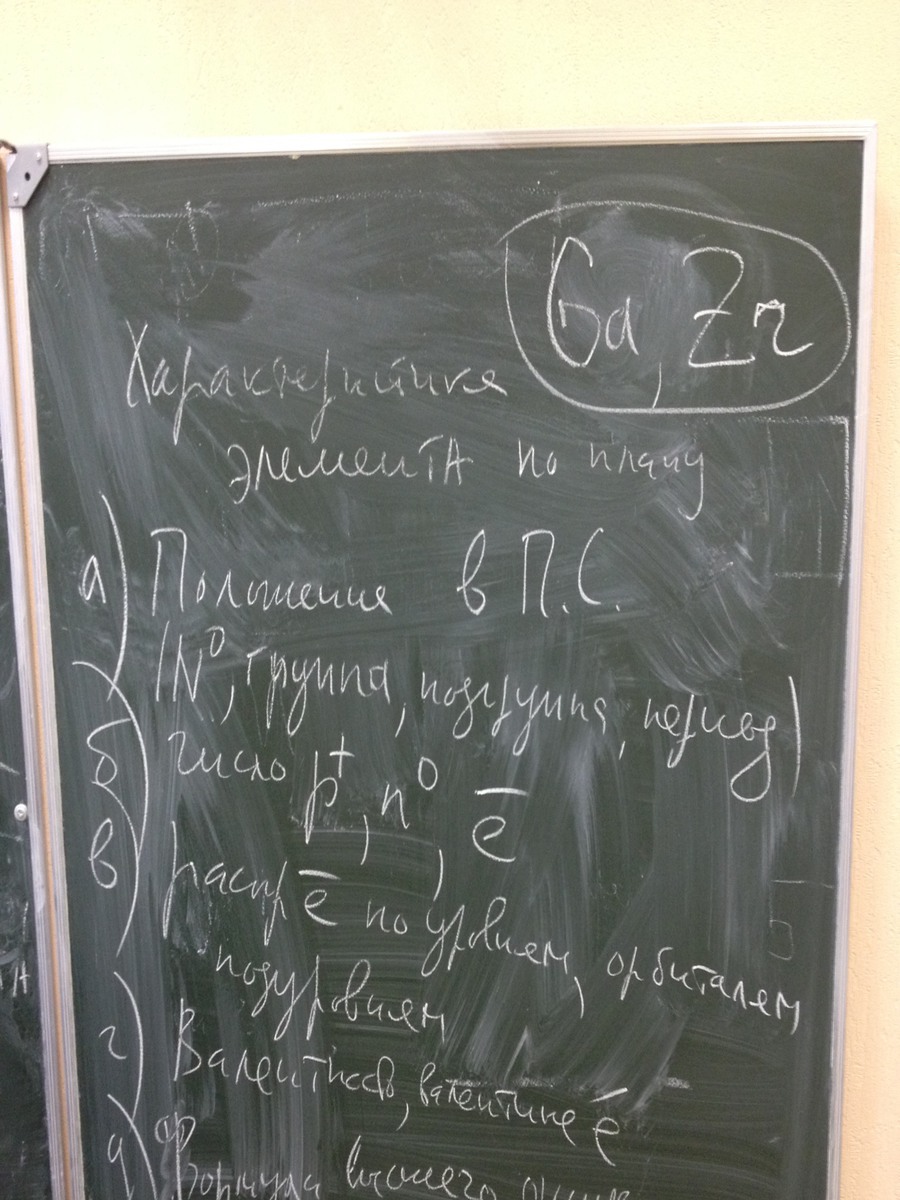 Ga, Zr
Характеристика
элемента по плану
а) Положение в П.С.
(N⁰, группа, подгруппа, период)
б) число p⁺, n⁰, e̅
в) распр e̅ по уровням, орбиталям
подуровням
г) Валентность, валентные e̅
д) Формула высшего оксида